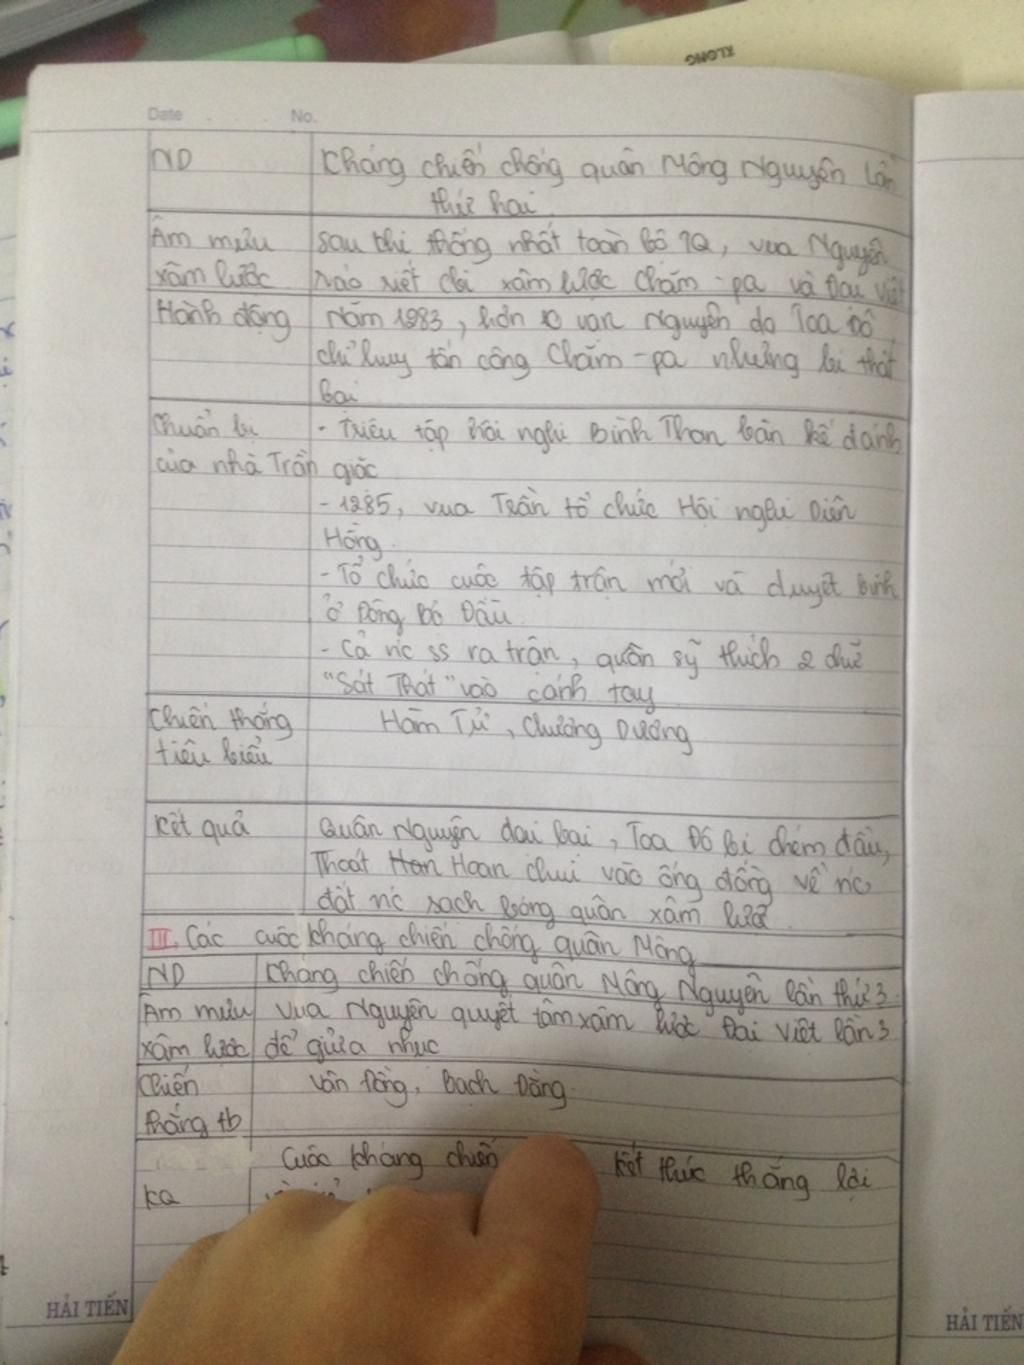 KLONG
Date No.
ND Kháng chiến chống quân Mông Nguyên lần
thứ hai
Âm mưu sau khi thống nhất toàn bộ TQ, vua Nguyên
xâm lược ráo riết cbi xâm lược Chăm-pa và Đại Việt
Hành động Năm 1283, hơn 10 vạn Nguyên do Toa Đô
chỉ huy tấn công Chăm-pa nhưng bị thất
bại
Chuẩn bị - Triệu tập Hội nghị Bình Than bàn kế đánh
của nhà Trần giặc
- 1285, vua Trần tổ chức Hội nghị Diên
Hồng.
- Tổ chức cuộc tập trận mới và duyệt binh
ở Đông Bộ Đầu.
- Cả nc ss ra trận, quân sỹ thích 2 chữ
"Sát Thát" vào cánh tay
Chiến thắng Hàm Tử, Chương Dương
tiêu biểu
Kết quả Quân Nguyên đại bại, Toa Đô bị chém đầu,
Thoát Hoan chui vào ống đồng về nc,
đất nc sạch bóng quân xâm lược.
III. Các cuộc kháng chiến chống quân Mông
ND Kháng chiến chống quân Mông Nguyên lần thứ 3.
Âm mưu vua Nguyên quyết tâm xâm lược Đại Việt lần 3
xâm lược để giửa nhục
Chiến Vân Đồng, Bạch Đằng.
thắng tb
Cuộc kháng chiến kết thúc thắng lợi
KQ
HẢI TIẾN
HẢI TIẾN